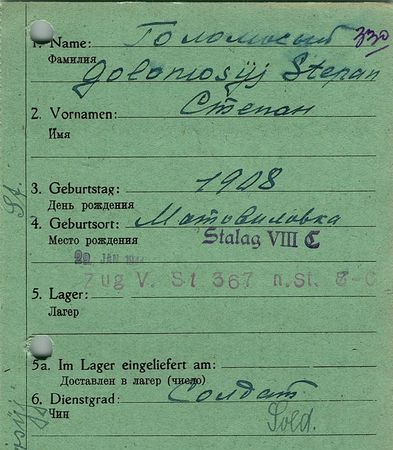 1. Name: Голомосий 330
Фамилия
Golomosyj Stepan
2. Vornamen: Степан
Имя
3. Geburtstag: 1908
День рождения
4. Geburtsort: Мотовиловка
Место рождения
Stalag VIII C
29 JAN
Zug V. St 367 n. St. 8-C
5. Lager:
Лагер
5a. Im Lager eingeliefert am:
Доставлен в лагер (число)
6. Dienstgrad: Солдат
Чин
Sold.